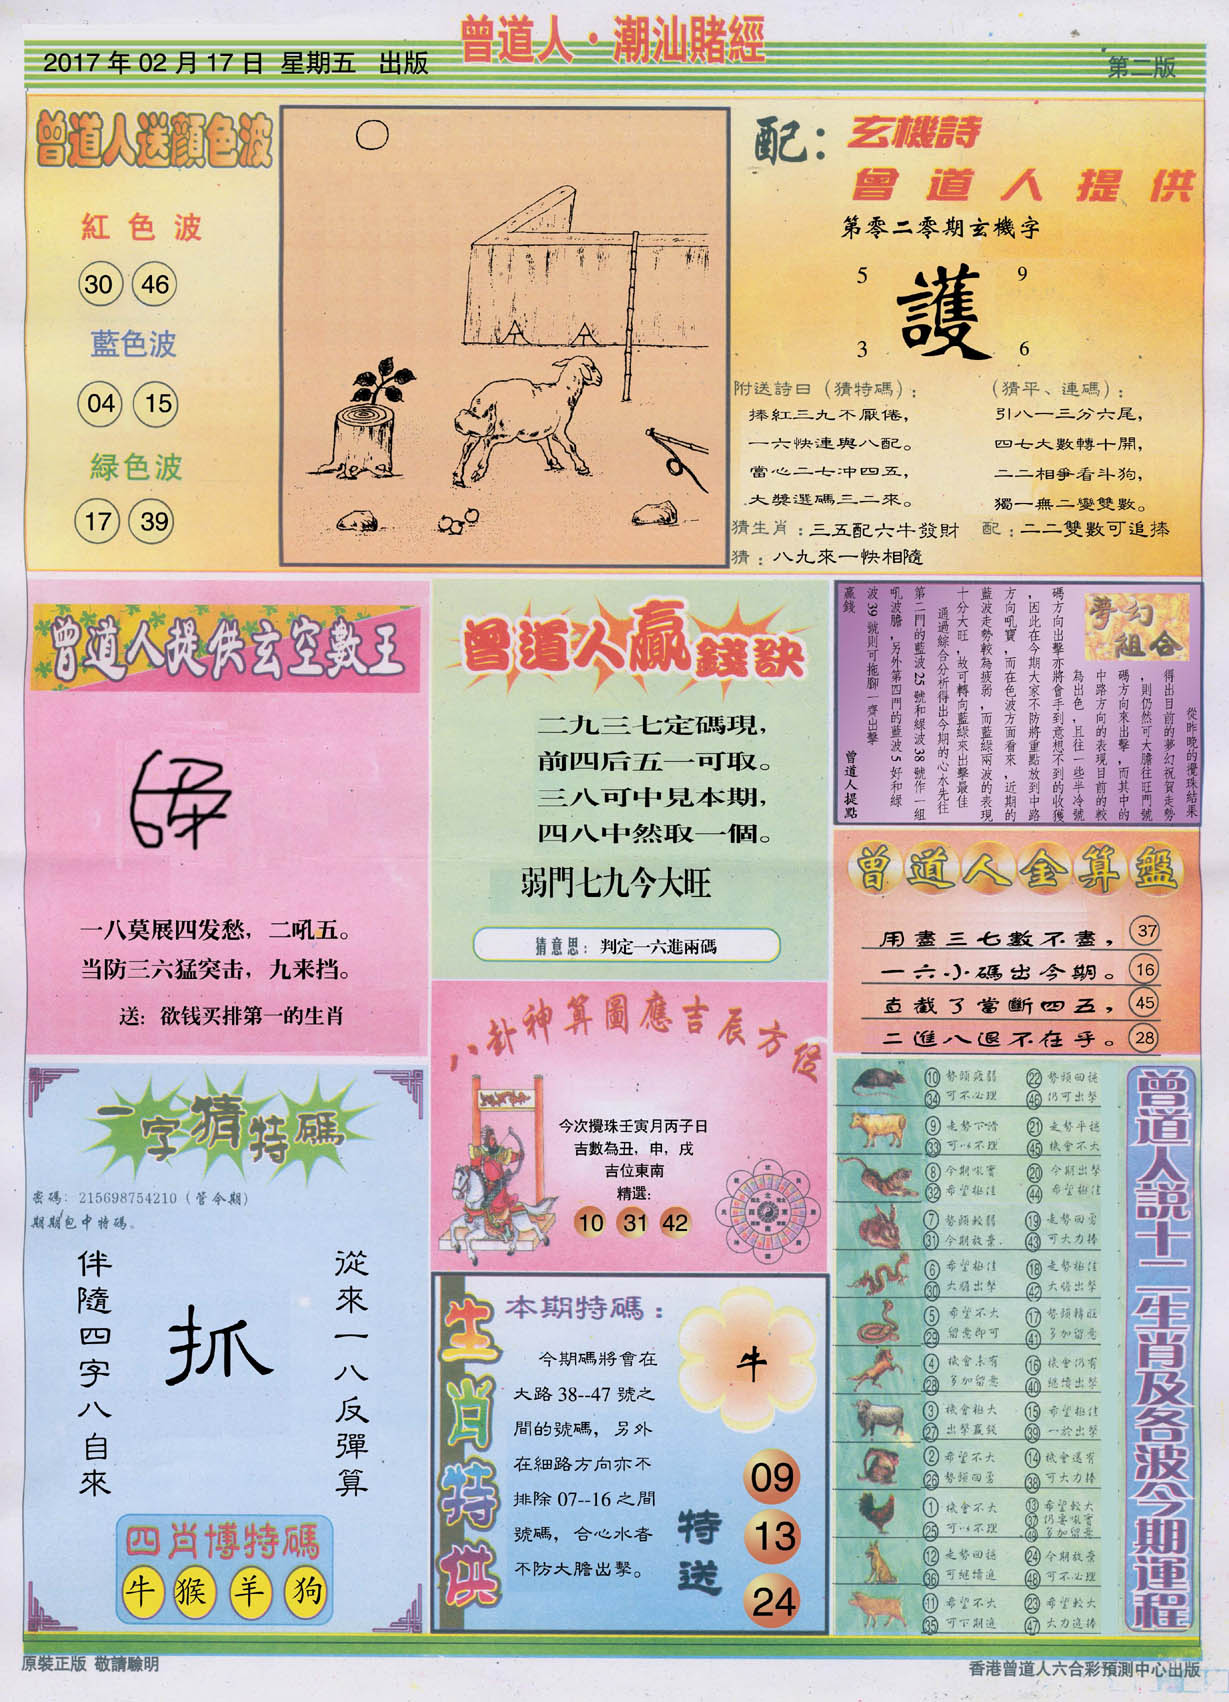 曾道人·潮汕賭經
2017年02月17日 星期五 出版
第二版
曾道人送顏色波
紅色波
30 46
藍色波
04 15
緑色波
17 39
配：玄機詩
曾道人提供
第零二零期玄機字
5 9
護
3 6
附送詩曰（猜特碼）：
捧紅三九不厭倦，
一六快連與八配。
當心二七冲四五，
大獎選碼三二來。
（猜平、連碼）：
引八一三分六尾，
四七大數轉十開，
二二相爭看斗狗，
獨一無二變雙數。
猜生肖：三五配六牛發財
配：二二雙數可追捧
猜：八九來一快相隨
曾道人提供玄空數王
一八莫展四发愁，二吼五。
当防三六猛突击，九来挡。
送：欲钱买排第一的生肖
曾道人贏錢訣
二九三七定碼現，
前四后五一可取。
三八可中見本期，
四八中然取一個。
弱門七九今大旺
猜意思：判定一六進兩碼
夢幻組合
從昨晚的攪珠結果
得出目前的夢幻祝賀走勢
，則仍然可大膽往旺門號
碼方向來出擊，而其中的
中路方向的表現目前的較
為出色，且往一些半冷號
碼方向出擊亦將會手到意想不到的收獲
，因此在今期大家不防將重點放到中路
方向吼寶，而在色波方面看來，近期的
藍波走勢較為疲弱，而藍綠兩波的表現
十分大旺，故可轉向藍綠來出擊最佳
通過綜合分析得出今期的心水先往
第二門的藍波25號和綠波38號作一組
吼波膽，另外第四門的藍波5好和綠
波39號則可拖腳一齊出擊
贏錢
曾道人提點
曾道人金算盤
用盡三七數不盡， 37
一六小碼出今期。 16
直截了當斷四五， 45
二進八退不在乎。 28
八卦神算圖應吉辰方位
今次攪珠壬寅月丙子日
吉數為丑，申，戌
吉位東南
精選:
10 31 42
一字猜特碼
密碼：215698754210（管今期）
期期包中特碼。
從來一八反彈算
抓
伴隨四字八自來
四肖博特碼
牛 猴 羊 狗
生肖特供
本期特碼：
今期碼將會在
大路38--47號之
間的號碼，另外
在細路方向亦不
排除07--16之間
號碼，合心水者
不防大膽出擊。
牛
特送
09
13
24
曾道人說十二生肖及各波今期運程
10 34 勢頭疲弱 可不必理
22 46 勢頭回穩 仍可出擊
9 33 走勢下滑 可以不理
21 45 走勢平穩 機會不大
8 32 今期吼寶 希望極佳
20 44 今期出擊 希望極佳
7 31 勢頭較弱 今期放棄
19 43 走勢回勇 可大力捧
6 30 希望極佳 大膽出擊
18 42 走勢極佳 大膽出擊
5 29 希望不大 留意即可
17 41 勢頭轉旺 多加留意
4 28 機會未有 多加留意
16 40 機會仍有 繼續出擊
3 27 機會極大 出擊贏錢
15 39 希望極佳 一於出擊
2 26 希望不大 勢頭回勇
14 38 機會還有 可大力捧
1 25 機會不大 可以不理
13 37 49 希望較大 仍要吼實 多加留意
12 36 走勢回穩 可繼續追
24 48 今期放棄 可不必理
11 35 希望不大 可下期追
23 47 希望較大 大力追捧
原裝正版 敬請驗明
香港曾道人六合彩預測中心出版